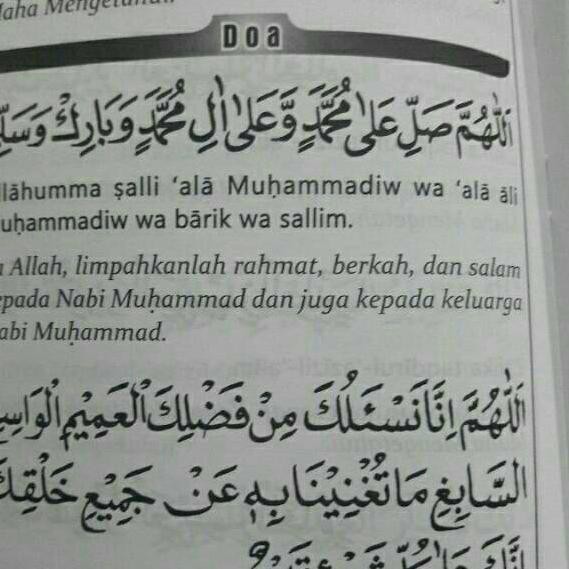 Maha Mengetahui.
Doa
اَللّٰهُمَّ صَلِّ عَلٰى مُحَمَّدٍ وَّعَلٰى اٰلِ مُحَمَّدٍ وَبَارِكْ وَسَلِّ
llāhumma ṣalli ‘alā Muḥammadiw wa ‘alā āli
uḥammadiw wa bārik wa sallim.
a Allah, limpahkanlah rahmat, berkah, dan salam
epada Nabi Muḥammad dan juga kepada keluarga
abi Muḥammad.
اَللّٰهُمَّ اِنَّا نَسْـَٔلُكَ مِنْ فَضْلِكَ الْعَمِيْمِ الْوَاسِ
السَّابِغِ مَا تُغْنِيْنَا بِهٖ عَنْ جَمِيْعِ خَلْقِكَ